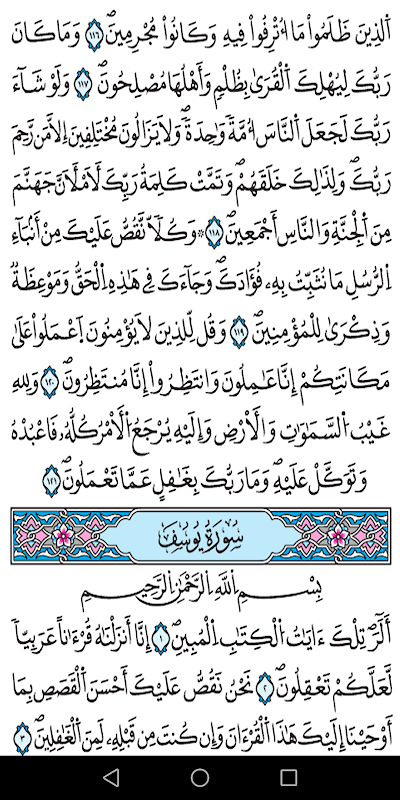 اَ۬لذِينَ ظَلَمُواْ مَا أُتْرِفُواْ فِيهِ وَكَانُواْ مُجْرِمِينَۖ ۝١١٦ وَمَا كَانَ
رَبُّكَ لِيُهْلِكَ اَ۬لْقُر۪ىٰ بِظُلْمٖ وَأَهْلُهَا مُصْلِحُونَۖ ۝١١٧ وَلَوْ شَآءَ
رَبُّكَ لَجَعَلَ اَ۬لنَّاسَ أُمَّةٗ وَٰحِدَةٗۖ وَلَا يَزَالُونَ مُخْتَلِفِينَ إِلَّا مَن رَّحِمَ
رَبُّكَۖ وَلِذَٰلِكَ خَلَقَهُمْۖ وَتَمَّتْ كَلِمَةُ رَبِّكَ لَأَمْلَأَنَّ جَهَنَّمَ
مِنَ اَ۬لْجِنَّةِ وَالنَّاسِ أَجْمَعِينَۖ ۝١١٨ ۞ وَكُلّاٗ نَّقُصُّ عَلَيْكَ مِنْ أَنۢبَآءِ
اِ۬لرُّسُلِ مَا نُثَبِّتُ بِهِۦ فُؤَادَكَۖ وَجَآءَكَ فِي هَٰذِهِ اِ۬لْحَقُّ وَمَوْعِظَةٞ
وَذِكْر۪ىٰ لِلْمُؤْمِنِينَۖ ۝١١٩ وَقُل لِّلذِينَ لَا يُؤْمِنُونَ اَ۪عْمَلُواْ عَلَىٰ
مَكَانَتِكُمْ إِنَّا عَٰمِلُونَ وَانتَظِرُواْ إِنَّا مُنتَظِرُونَۖ ۝١٢٠ وَلِلهِ
غَيْبُ اُ۬لسَّمَٰوَٰتِ وَالْأَرْضِ وَإِلَيْهِ يُرْجَعُ اُ۬لْأَمْرُ كُلُّهُۥ فَاعْبُدْهُ
وَتَوَكَّلْ عَلَيْهِۖ وَمَا رَبُّكَ بِغَٰفِلٍ عَمَّا تَعْمَلُونَۖ ۝١٢١
سُورَةُ يُوسُفَ
بِسْمِ اِ۬للَّهِ اِ۬لرَّحْمَٰنِ اِ۬لرَّحِيمِ
أَلَٓر۪ۖ تِلْكَ ءَايَٰتُ اُ۬لْكِتَٰبِ اِ۬لْمُبِينِۖ ۝١ إِنَّا أَنزَلْنَٰهُ قُرْءَٰناً عَرَبِيّاٗ
لَّعَلَّكُمْ تَعْقِلُونَۖ ۝٢ نَحْنُ نَقُصُّ عَلَيْكَ أَحْسَنَ اَ۬لْقَصَصِ بِمَا
أَوْحَيْنَا إِلَيْكَ هَٰذَا اَ۬لْقُرْءَانَ وَإِن كُنتَ مِن قَبْلِهِۦ لَمِنَ اَ۬لْغَٰفِلِينَۖ ۝٣